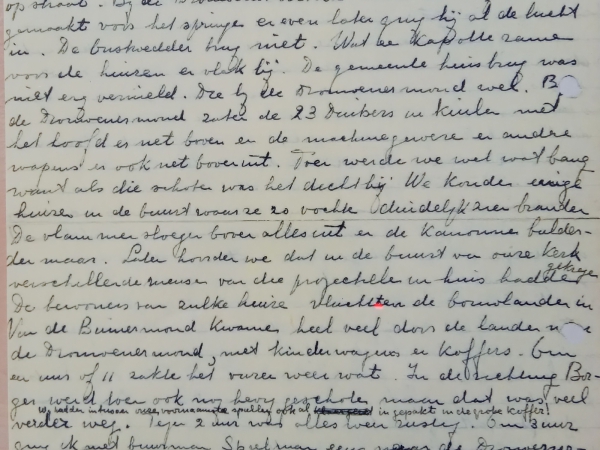 op straat. Bij de
gemaakt voor het springen en even later ging hij al de lucht
in. De buskvedder brug niet. Wat le kapotte ramen
voor de huizen er vlak bij. De gemeente huisbrug was
niet erg vernield. Die bij de Drouwenermond wel. B
de Drouwenermond zaten de 23 Duitsers in kuilen met
het hoofd er net boven en de machinegeweren en andere
wapens er ook net boven uit. Toen werden we wel wat bang
want als die schoten was het dicht bij. We konden eenige
huizen in de buurt waar ze zo vochten duidelijk zien branden
De vlammen sloegen boven alles uit en de kanonnen bulder-
den maar. Later hoorden we dat in de buurt van onze kerk
verschillende mensen van die projectielen in huis hadden gekregen
De bewoners van zulke huizen vluchtten de bouwlanden in
Van de Buinermond kwamen heel veel door de landen n
de Drouwenermond, met kinderwagens en koffers. Om
een uur of 11 zakte het vuren weer wat. In de richting Bor-
ger werd toen ook nog hevig geschoten maar dat was veel
We hadden intussen onze voornaamste spullen ook al in gepakt in de grote koffer!
verder weg. Tegen 2 uur was alles weer rustig. Om 3 uur
ging ik met buurman Speelman eens naar de Drouwene-